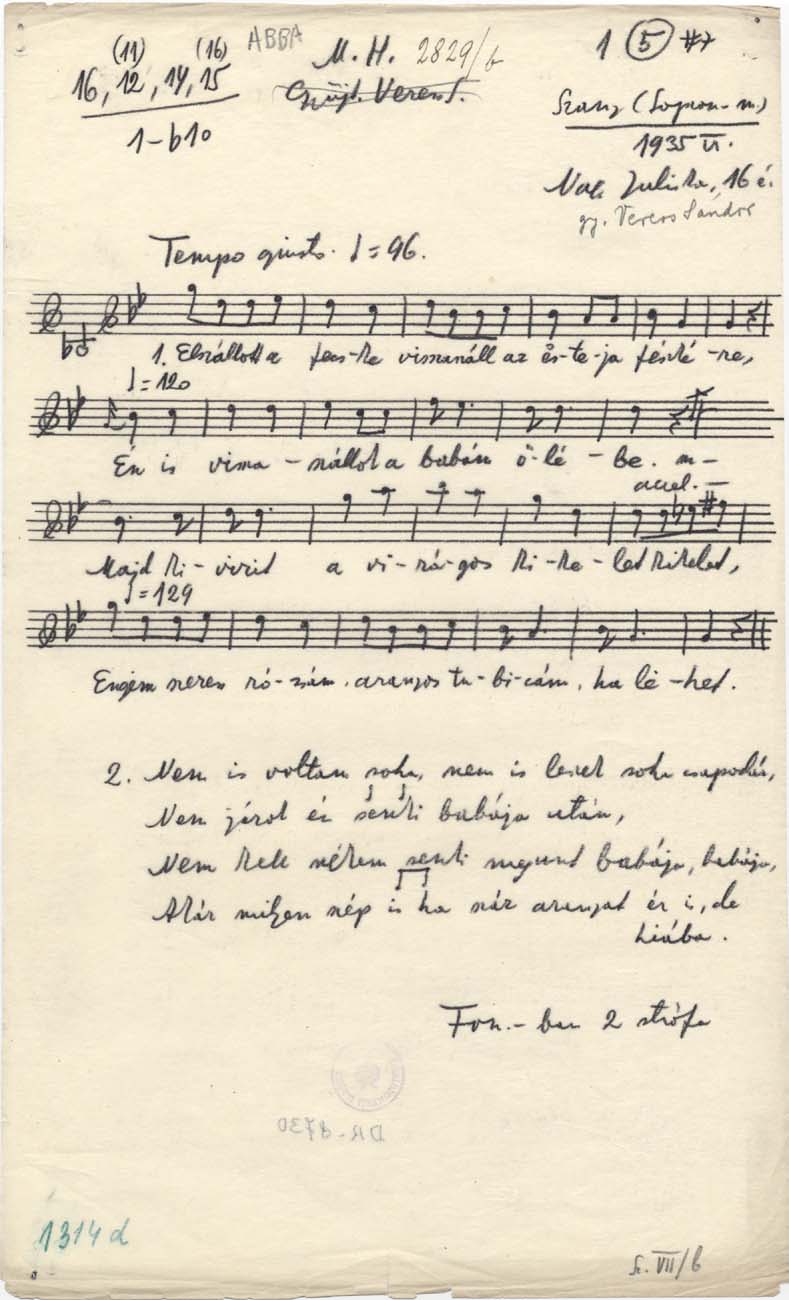 (11) (16) ABBA
16, 12, 14, 15
1-b10
M. H. 2829/b
Gyűjt. Veress S.
1 5
Szany (Sopron-m.)
1935 VI.
Juliska, 16 é.
gy. Veress Sándor
Tempo giusto. ♩ = 96.
1. Elszállott a fecs-ke visszaszáll az ës-te-ja fészké-re,
♩ = 120
Én is vissza-szállok a babám ö-lé-be.
accel.
Majd ki-virít a vi-rá-gos ki-ke-let kikelet,
♩ = 129
Engem szeress ró-zsám, aranyos tu-bi-cám, ha lë-het.
2. Nem is voltam soha, nem is leszek soha csapodár,
Nem járok én senki babája után,
Nem kell nékem senki babája, babája,
Akár milyen szép is ha száz aranyat ér is, de
hiába.
Fon.-ban 2 strófa
DR-9730
1314 d
VII/b